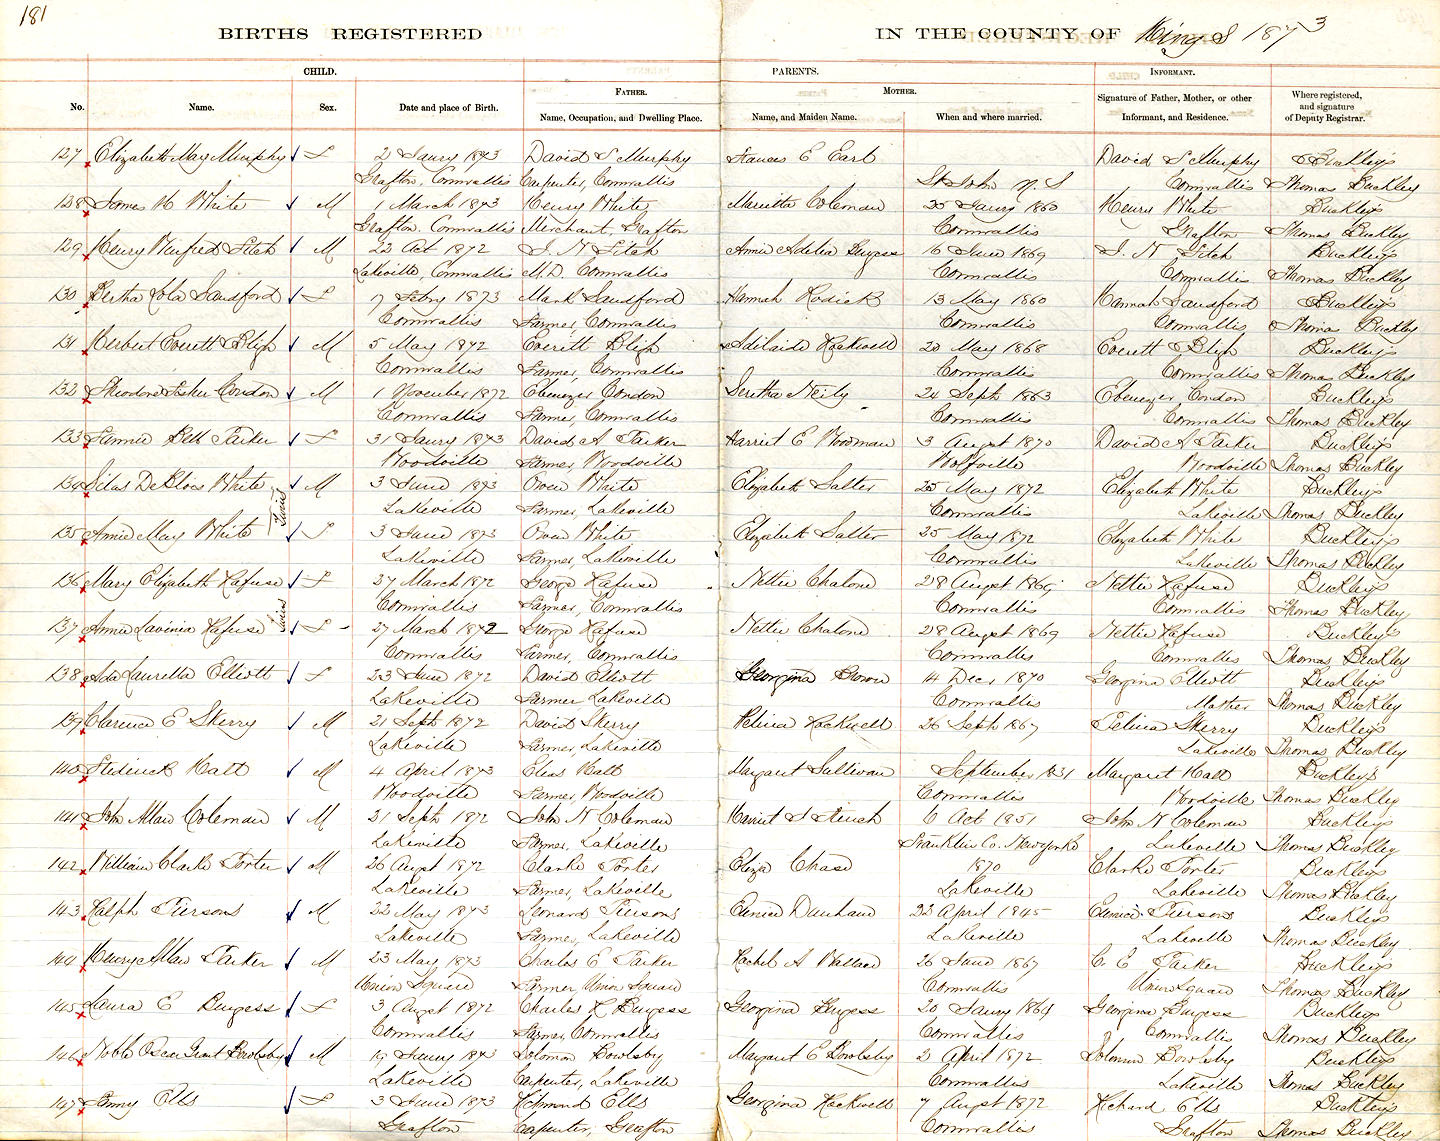 181
BIRTHS REGISTERED IN THE COUNTY OF Kings 1873
CHILD. PARENTS. INFORMANT.
No. Name. Sex. Date and place of Birth. FATHER. Name, Occupation, and Dwelling Place. MOTHER. Name, and Maiden Name. When and where married. Signature of Father, Mother, or other Informant, and Residence. Where registered, and signature of Deputy Registrar.
127 Elizabeth May Murphy F 2 Jaury 1873 David S Murphy Frances E Earl David S Murphy Buckley's
Grafton, Cornwallis Carpenter, Cornwallis St John N S Cornwallis Thomas Buckley
128 James H White M 1 March 1873 Henry White Marietta Coleman 25 Jaury 1860 Henry White Buckley's
Grafton, Cornwallis Merchant, Grafton Cornwallis Grafton Thomas Buckley
129 Henry Winfred Fitch M 22 Oct 1872 J. N Fitch Annie Adelia Burgess 16 June 1869 J. N Fitch Buckley's
Lakeville, Cornwallis M.D. Cornwallis Cornwallis Cornwallis Thomas Buckley
130 Bertha Lola Sandford F 17 Febry 1873 Mark Sandford Hannah 13 May 1860 Hannah Sandford Buckley's
Cornwallis Farmer, Cornwallis Cornwallis Cornwallis Thomas Buckley
131 Herbert Everett Bligh M 5 May 1872 Everitt Bligh Adelaide Rockwell 20 May 1868 Everett Bligh Buckley's
Cornwallis Farmer, Cornwallis Cornwallis Cornwallis Thomas Buckley
132 Theodore Condon M 1 November 1872 Ebenezer Condon Seretha Neily 24 Sept 1863 Ebenezer Condon Buckley's
Cornwallis Farmer, Cornwallis Cornwallis Cornwallis Thomas Buckley
133 Fannie Bell Parker F 31 Jaury 1873 David A Parker Harriet E Woodman 3 August 1870 David A Parker Buckley's
Woodville Farmer, Woodville Wolfville Woodville Thomas Buckley
134 Silas DeBlois White Twins M 3 June 1873 Owen White Elizabeth Salter 25 May 1872 Elizabeth White Buckley's
Lakeville Farmer, Lakeville Cornwallis Lakeville Thomas Buckley
135 Annie May White F 3 June 1873 Owen White Elizabeth Salter 25 May 1872 Elizabeth White Buckley's
Lakeville Farmer, Lakeville Cornwallis Lakeville Thomas Buckley
136 Mary Elizabeth Rafuse Twins F 27 March 1872 George Rafuse Nettie Chalone 28 Augst 1869 Nettie Rafuse Buckley's
Cornwallis Farmer, Cornwallis Cornwallis Cornwallis Thomas Buckley
137 Annie Lavinia Rafuse F 27 March 1872 George Rafuse Nettie Chalone 28 Augst 1869 Nettie Rafuse Buckley's
Cornwallis Farmer, Cornwallis Cornwallis Cornwallis Thomas Buckley
138 Ada Lauretta Elliott F 23 June 1872 David Elliott Georgina Brown 14 Dec, 1870 Georgina Elliott Buckley's
Lakeville Farmer, Lakeville Cornwallis Mother Thomas Buckley
139 Clarence E Skerry M 21 Sept 1872 David Skerry Felicia Rockwell 26 Sept 1867 Felicia Skerry Buckley's
Lakeville Farmer, Lakeville Lakeville Thomas Buckley
140 Fredrick Hall M 4 April 1873 Elias Hall Margaret Sullivan September, 1851 Margaret Hall Buckley's
Woodville Farmer, Woodville Cornwallis Woodville Thomas Buckley
141 John Allan Coleman M 21 Sept 1872 John N Coleman Harriet S 6 Oct 1851 John N Coleman Buckley's
Lakeville Farmer, Lakeville Franklin Co. New yorke Lakeville Thomas Buckley
142 William Clarke Porter M 26 Augst 1872 Clarke Porter Eliza Chase 1870 Clarke Porter Buckley's
Lakeville Farmer, Lakeville Lakeville Lakeville Thomas Buckley
143 Ralph Piersons M 22 May 1873 Leonard Piersons Eunice 22 April 1845 Eunice Piersons Buckley's
Lakeville Farmer, Lakeville Lakeville Lakeville Thomas Buckley
144 Henry Allan Parker M 23 May 1873 Charles E Parker Rachel A Wallace 26 June 1867 C. E Parker Buckley's
Union Square Farmer, Union Square Cornwallis Union Square Thomas Buckley
145 Laura E Burgess F 3 Augst 1872 Charles R Burgess Georgina Burgess 20 Jaury 1864 Georgina Burgess Buckley's
Cornwallis Farmer, Cornwallis Cornwallis Cornwallis Thomas Buckley
146 Noble Oscar Grant Bowlsby M 19 Jaury 1873 Solomon Bowlsby Margaret E Bowlsby 2 April 1872 Solomon Bowlsby Buckley's
Lakeville Carpenter, Lakeville Cornwallis Lakeville Thomas Buckley
147 Fanny Ells F 3 June 1873 Richmond Ells Georgina Rockwell 7 Augst 1872 Richard Ells Buckley's
Grafton Carpenter, Grafton Cornwallis Grafton Thomas Buckley